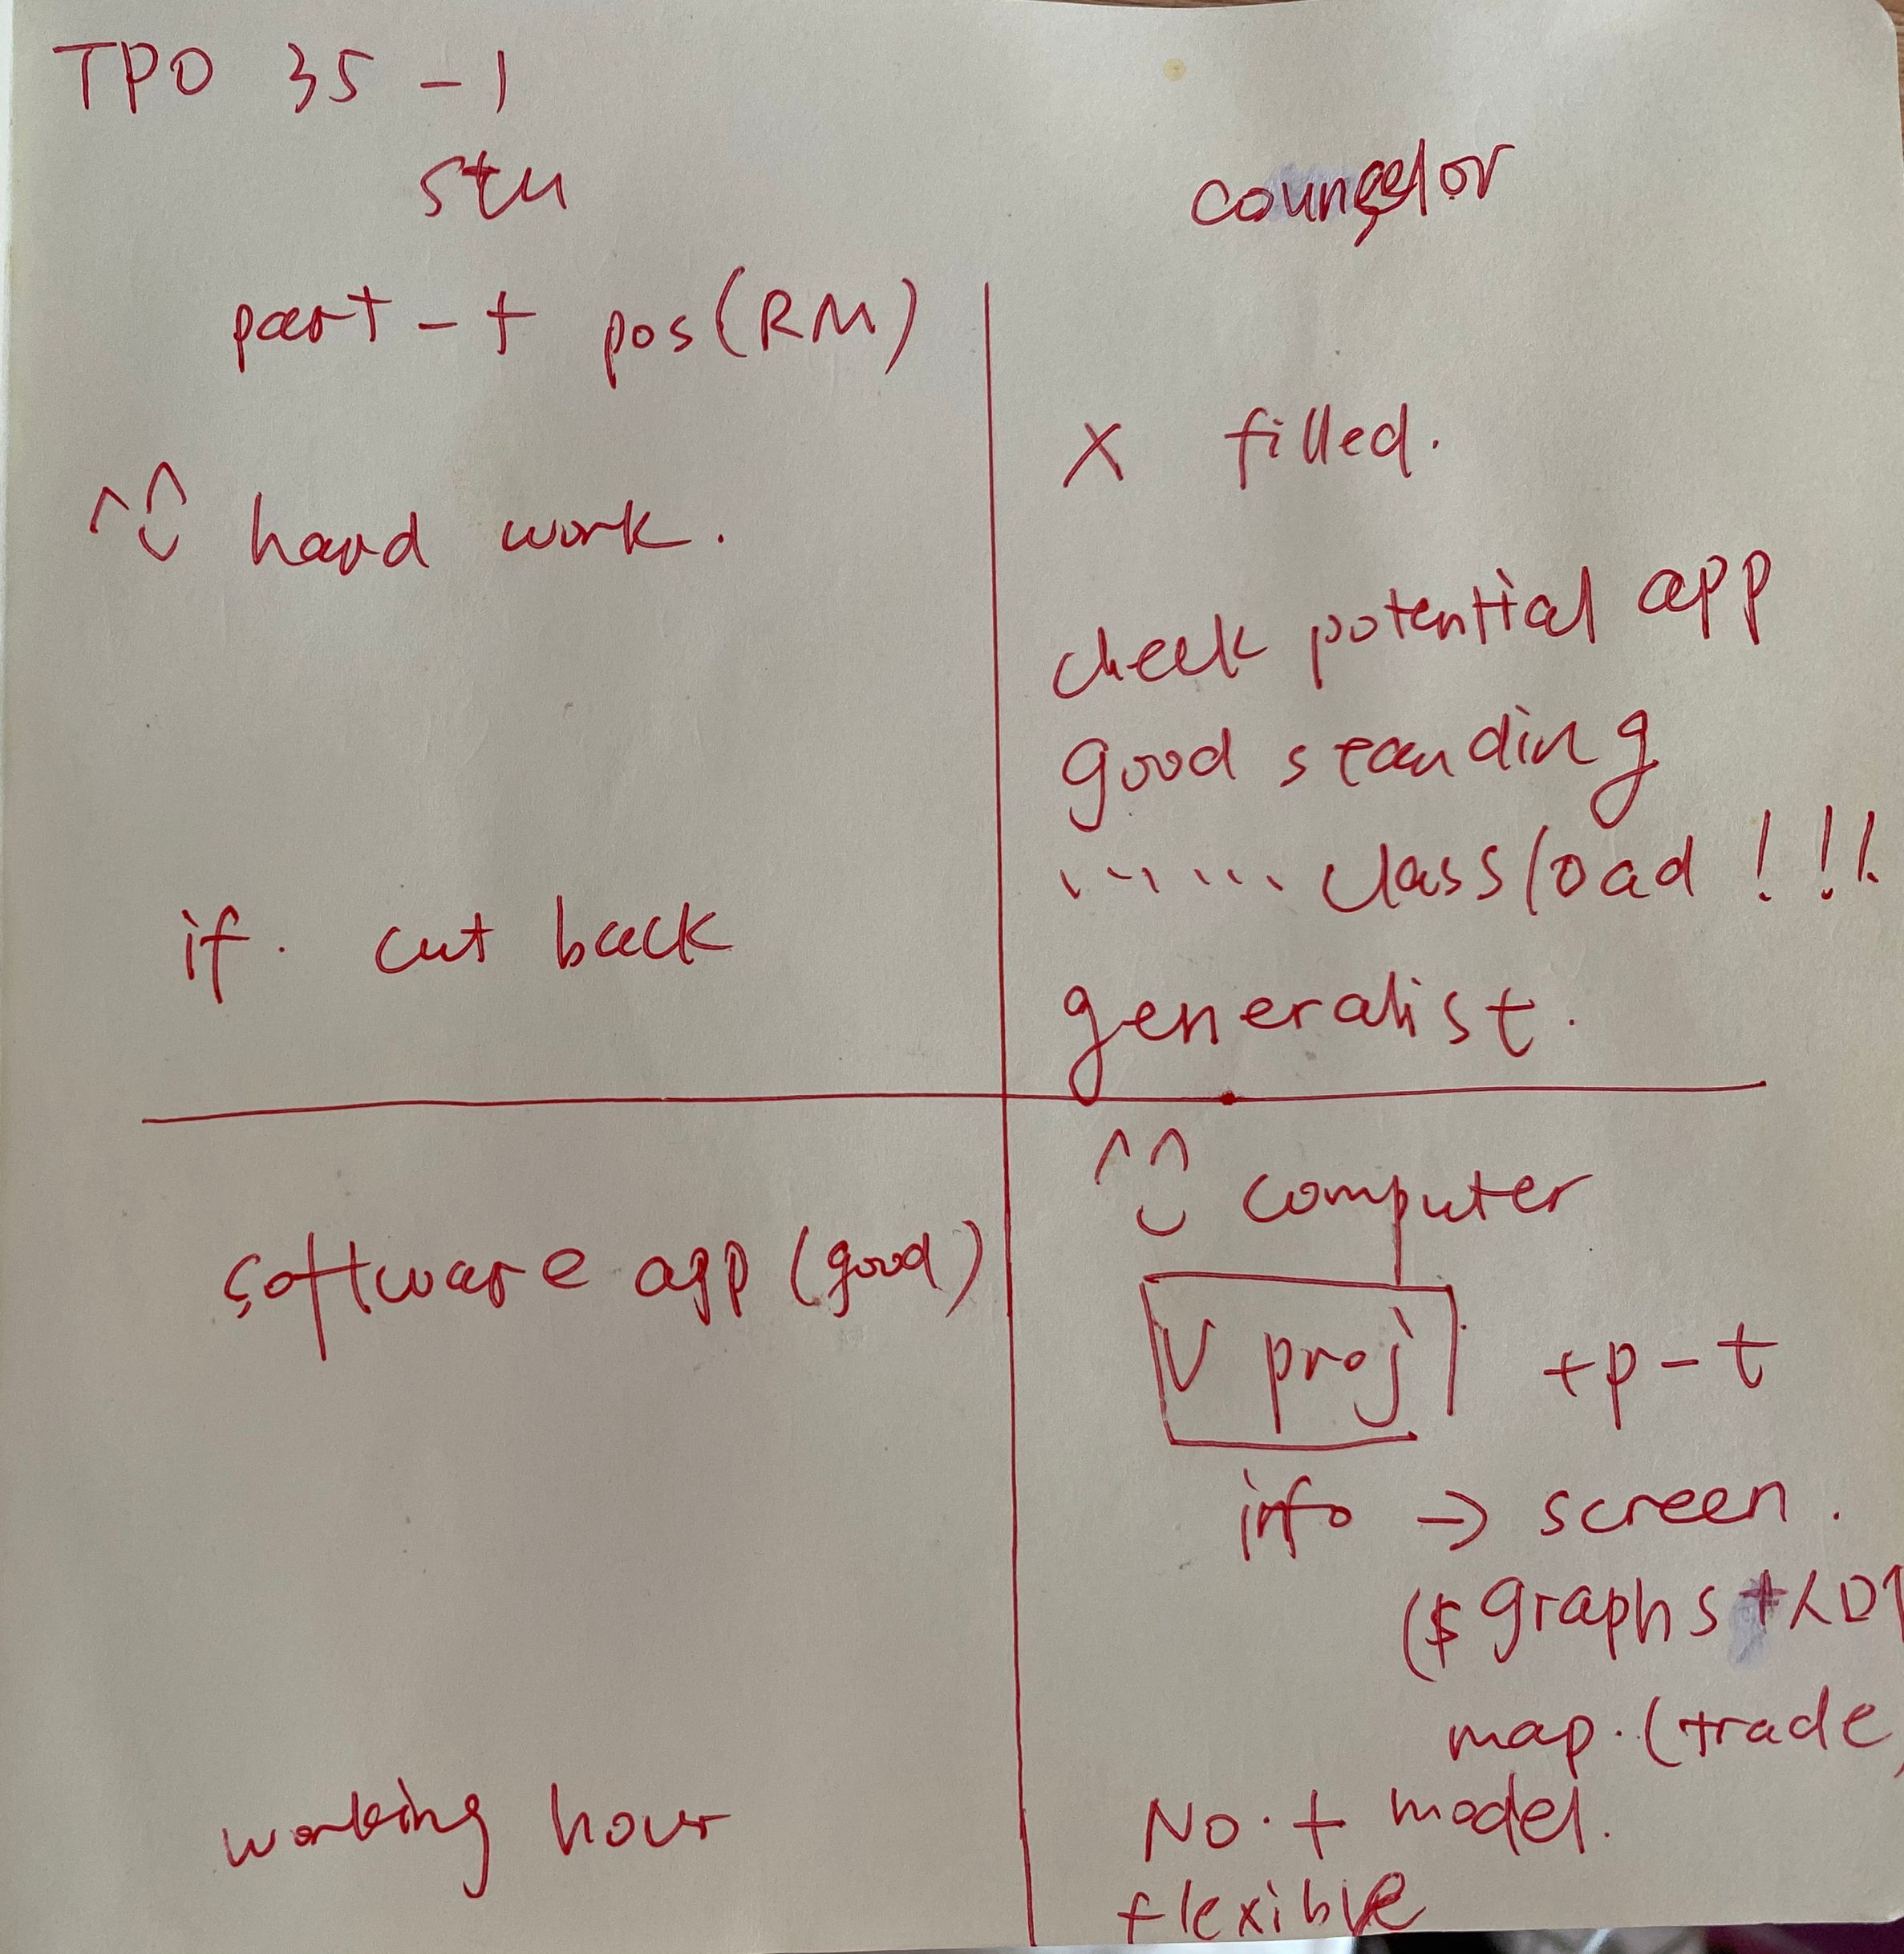 TPO 35 - 1
stu
counselor
part - t pos (RM)
X filled.
hard work.
check potential app
good standing
...... class load !!!
if. cut back
generalist.
computer
software app (good)
V proj + p - t
info → screen.
($ graphs +
map. (trade)
working hour
No. + model.
flexible